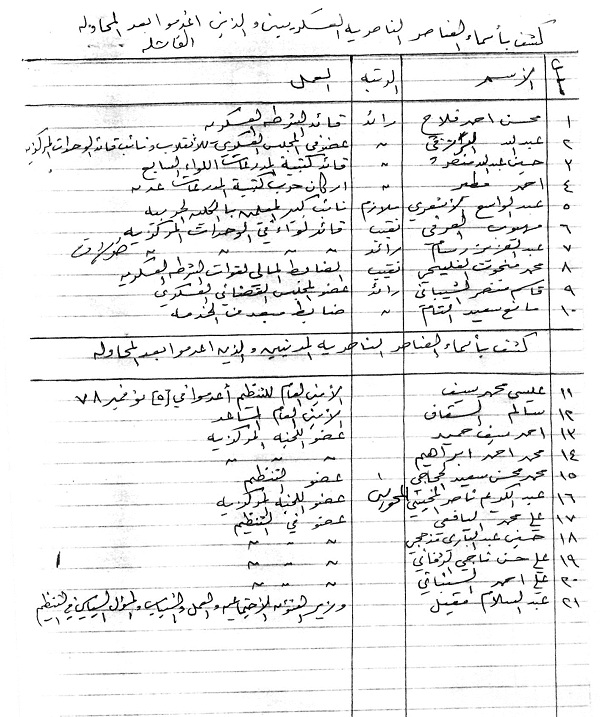 كشف بأسماء العناصر الناصرية العسكريين والذين اعدموا بعد المحاوله
الفاشله
الاسم الرتبه العمل
١ محسن احمد فلاح رائد قائد الشرطه العسكريه
٢ عبدالله الرازقي " عضو في المجلس العسكري للأنقلاب ونائب قائد الوحدات المركزيه
٣ حسين عبدالله منصور " قائد كتيبة المدرعات اللواء السابع
٤ احمد مطير " اركان حرب كتيبة المدرعات
٥ عبدالواسع الاشعري ملازم نائب كبير المعلمين بالكليه الحربيه
٦ مهيوب العرفي نقيب قائد لواء في الوحدات المركزيه
٧ عبدالعزيز رسام رائد " " " "
٨ محمد منحوت لفليحي نقيب الضابط المالي لقوات الشرطه العسكريه
٩ قاسم منصر الشيباني رائد عضو المجلس القضائي العسكري
١٠ مانع سعيد التام " ضابط مبعد من الخدمه
كشف بأسماء العناصر الناصريه المدنيين والذين اعدموا بعد المحاوله
١١ عيسى محمد سيف الأمين العام للتنظيم أعدموا في [٥] نوفمبر ٧٨
١٢ سالم السقاف الأمين العام المساعد
١٣ احمد سيف حميد عضو اللجنه المركزيه
١٤ محمد احمد ابراهيم " " "
١٥ محمد محسن سعيد الحجاجي عضو التنظيم
١٦ عبدالكريم ناصر المحيثي عضو اللجنه المركزيه
١٧ علي محمد اليافعي عضو في التنظيم
١٨ حسين عبدالباري " " "
١٩ علي حسن ناجي " " "
٢٠ علي احمد السنباني " " "
٢١ عبدالسلام مقبل وزير الشئون الأجتماعيه والعمل والشباب والمسؤل السياسي في التنظيم